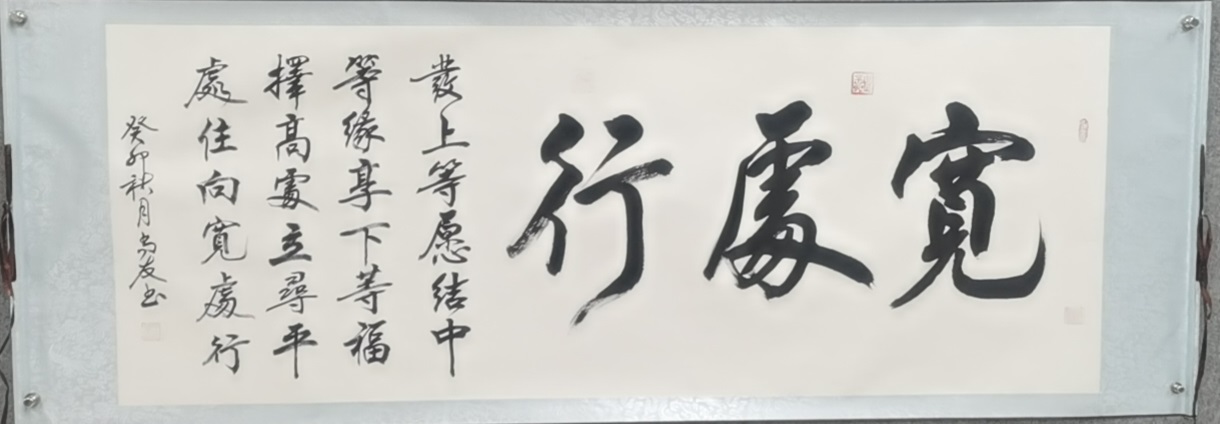 寬處行
發上等愿結中
等緣享下等福
擇高處立尋平
處住向寬處行
癸卯秋月尚友书